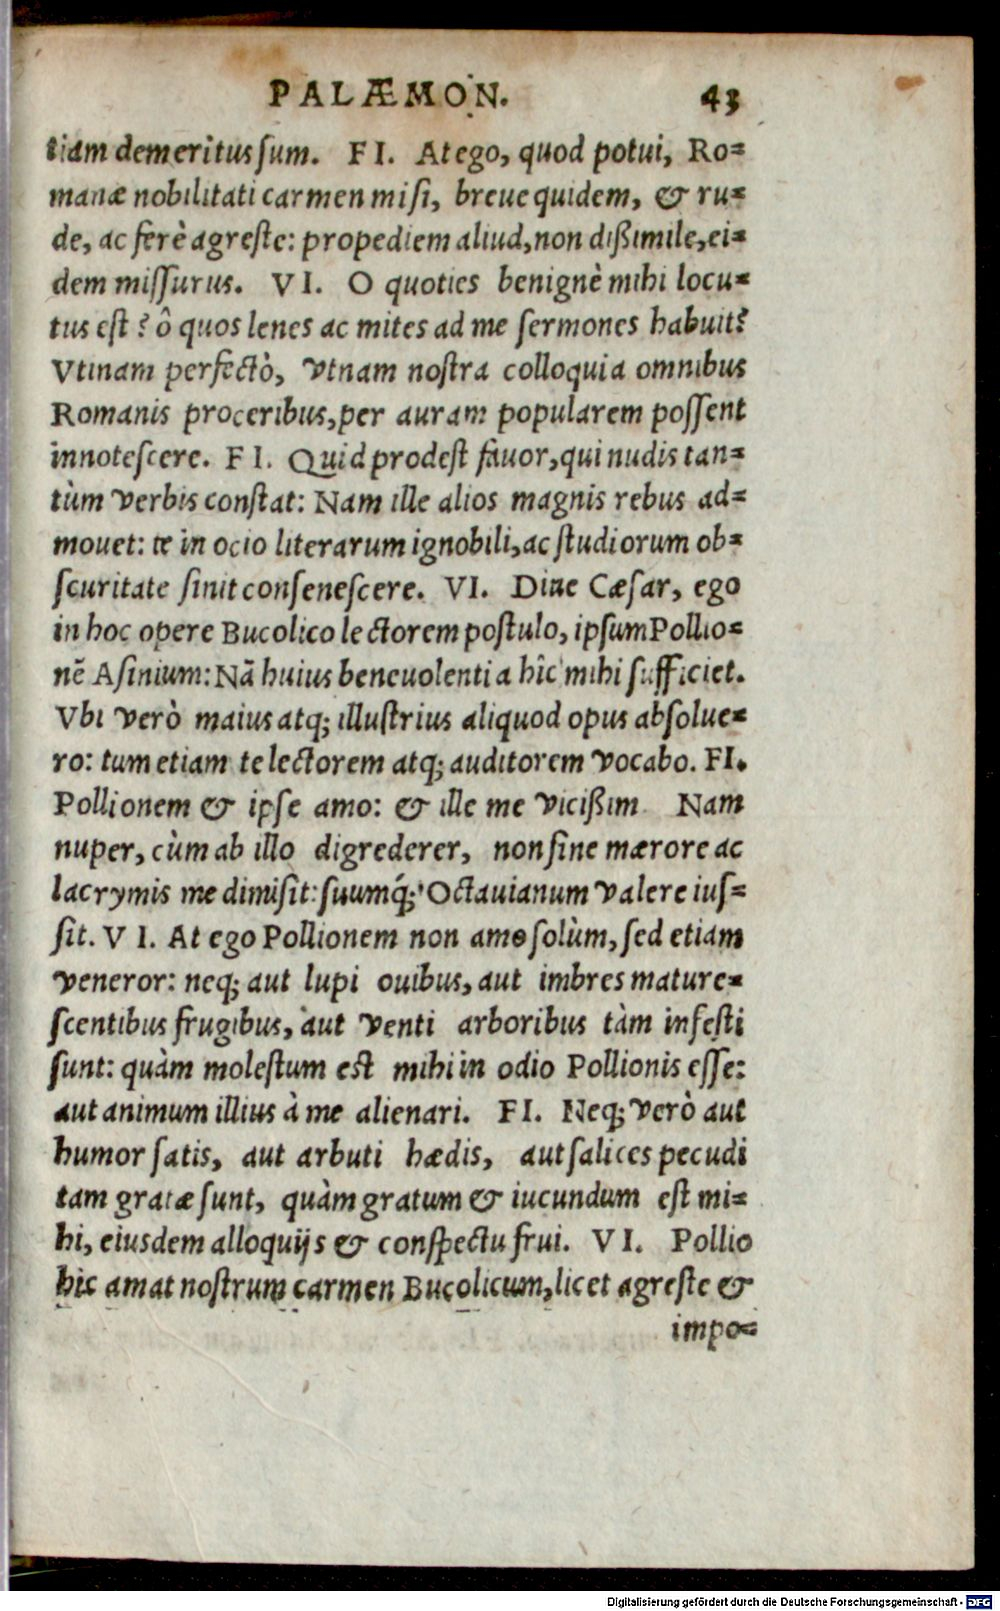 PALÆMON. 43
tiam demeritus sum. FI. At ego, quod potui, Ro=
manæ nobilitati carmen misi, breue quidem, & ru=
de, ac ferè agreste: propediem aliud, non dißimile, ei=
dem missurus. VI. O quoties benignè mihi locu=
tus est? ô quos lenes ac mites ad me sermones habuit?
Vtinam perfectò, vtnam nostra colloquia omnibus
Romanis proceribus, per auram popularem possent
innotescere. FI. Quid prodest fauor, qui nudis tan=
tùm verbis constat: Nam ille alios magnis rebus ad=
mouet: te in ocio literarum ignobili, ac studiorum ob=
scuritate sinit consenescere. VI. Diue Cæsar, ego
in hoc opere Bucolico lectorem postulo, ipsum Pollio=
nē Asinium: Nā huius beneuolentia hîc mihi sufficiet.
Vbi verò maius atq; illustrius aliquod opus absolue=
ro: tum etiam te lectorem atq; auditorem vocabo. FI.
Pollionem & ipse amo: & ille me vicißim Nam
nuper, cùm ab illo digrederer, non sine mærore ac
lacrymis me dimisit: suumq́; Octauianum valere ius=
sit. VI. At ego Pollionem non amo solùm, sed etiam
veneror: neq; aut lupi ouibus, aut imbres mature=
scentibus frugibus, aut venti arboribus tàm infesti
sunt: quàm molestum est mihi in odio Pollionis esse:
aut animum illius à me alienari. FI. Neq; verò aut
humor satis, aut arbuti hædis, aut salices pecudi
tam gratæ sunt, quàm gratum & iucundum est mi=
hi, eiusdem alloquijs & conspectu frui. VI. Pollio
hic amat nostrum carmen Bucolicum, licet agreste &
impo=
Digitalisierung gefördert durch die Deutsche Forschungsgemeinschaft - DFG